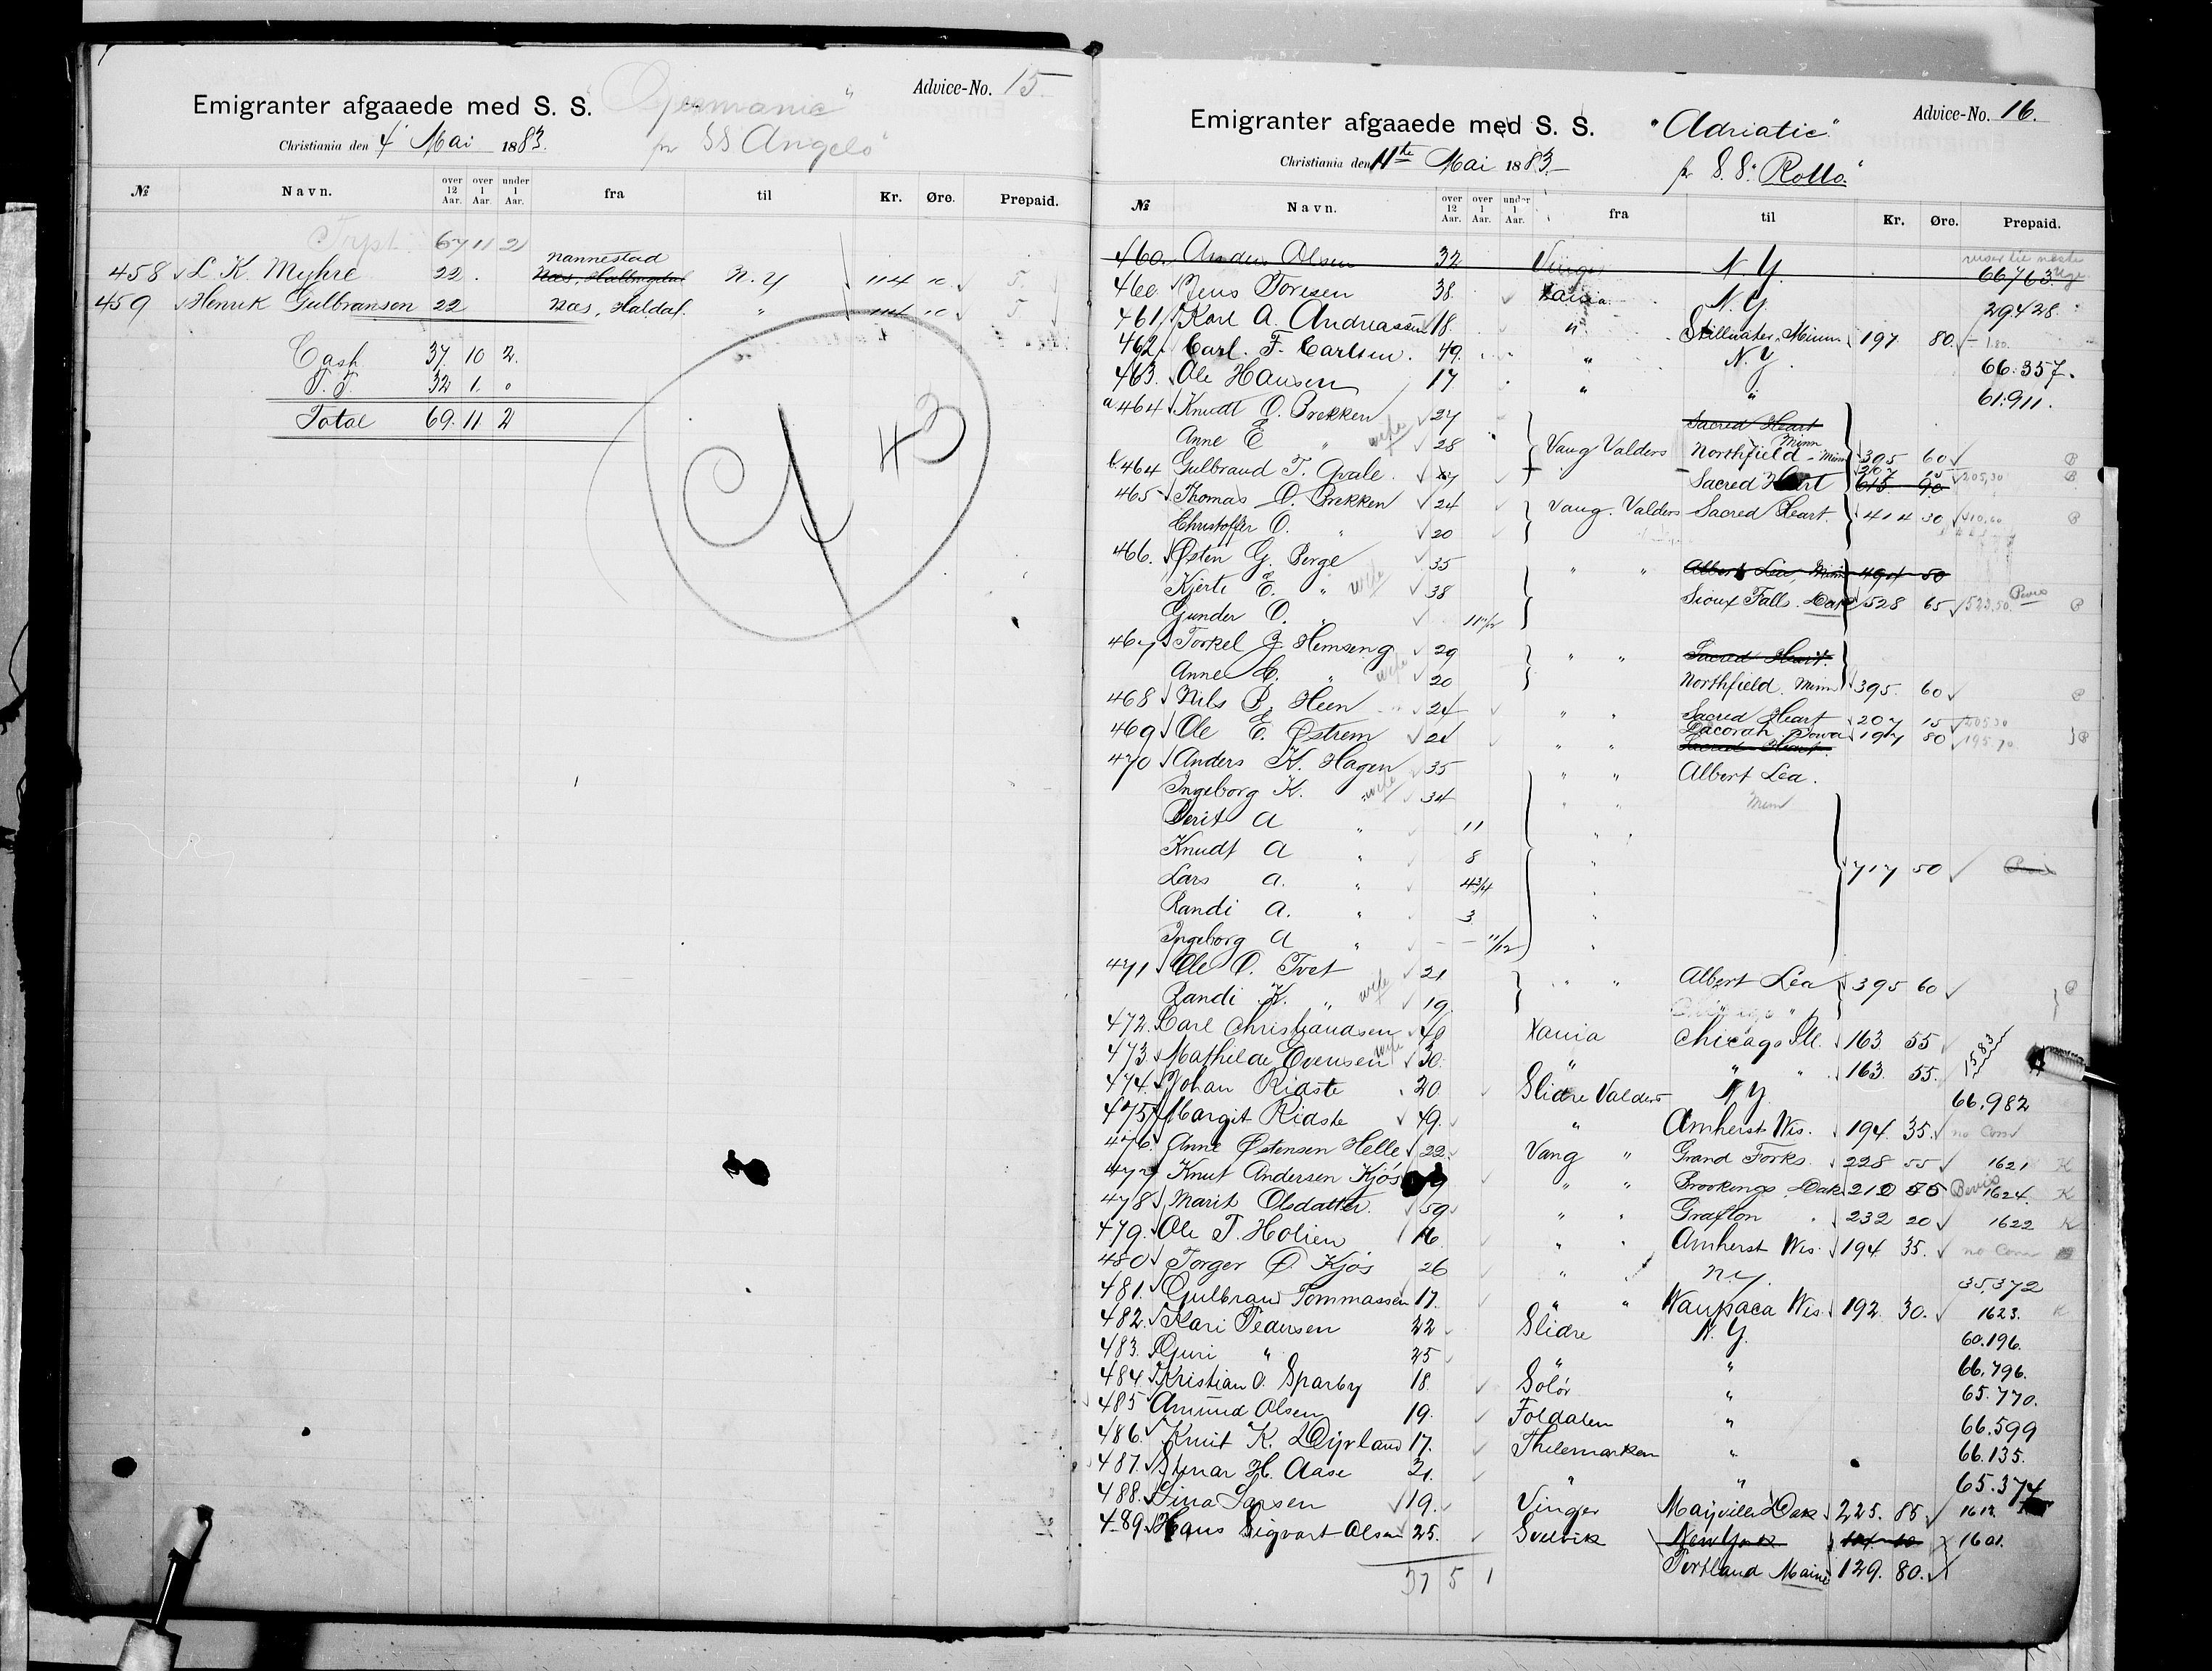 Advice-No. 15
Emigranter afgaaede med S. S. "Germanic"
Christiania den 4 Mai 1883. for SS Angelo"
№ Navn. over 12 Aar. over 1 Aar. under 1 Aar. fra til Kr. Øre. Prepaid.
Trpt 67 11 2
Nannestad
458 L. K. Myhre 22 Næs, Hallingdal N.Y 114 10 5
459 Henrik Gulbransen 22 Næs, Haldal. " 114 10 5
Cash 37 10 2.
P. T. 32 1. "
Total 69. 11 2
43
Advice-No. 16.
Emigranter afgaaede med S. S. "Adriatic"
Christiania den 11te Mai 1883. pr S. S. "Rollo"
№ Navn. over 12 Aar. over 1 Aar. under 1 Aar. fra til Kr. Øre. Prepaid.
reiser til næste Uge
460. Anders Olsen 32 Vinger N.Y. 66763
460 Jens Toresen 38. Xania. N.Y. 29428
461 Karl A. Andreassen 18. " Stillwater, Minn 197 80. 1.80.
462. Carl. F. Carlsen. 49. " N.Y. 66.357.
463. Ole Hansen 17 " " 61.911.
a 464 Knudt O. Brekken 27 Sacred Heart
Anne E " wife 28 Vang Valders Northfield - Minn 395 60
b. 464 Gulbrand T. Qvale. 17 " Sacred Heart 207 15 205,30
615 90
465 Thomas O. Brekken 24 Vang. Valders Sacred Heart. 414 30 410.60
Christoffer O. " 20
466. Østen G. Berge 35 " " Albert Lea, Minn 494 50
Kjerti E. " wife 38 Sioux Falls. Dak 528 65 523,50. Bevis
Gunder O. " 11 11/12
467 Torkel G Hemseng 29 " " Sacred Heart.
Anne E. " wife 20 Northfield. Minn 395. 60
468 Nils B. Heen 24 " " Sacred Heart 207 15 205.30
469 Ole E. Østrem 21 " " Decorah Iowa 197 80 195.70
Sacred Heart.
470 Anders K. Hagen 35 " " Albert Lea.
Ingeborg K. " wife 34 " " Minn
Berit A " 11 " "
Knudt A " 8 " 717 50 Bevis
Lars A. " 4 3/4 "
Randi A. " 3 "
Ingeborg A " 11/12 "
471 Ole O. Tvet 21 " " Albert Lea 395 60
Randi K. " wife 19
472. Carl Christiandsen 40 Xania Chicago Ill. 163 55
473 Mathilde Evensen wife 30. " " " 163. 55. 1583
474. Johan Ridste 20 Slidre Valders N.Y. 66.982
475 Margit Ridste 49. " Amherst Wis. 194. 35. no Com
476. Anne Østensen Helle 22. Vang " Grand Forks. 228 55 1621 K
477 Knut Andersen Kjøs " " Brookings. Dak 210 55 Bevis 1624. K
478 Marit Olsdatter. 59 " " Grafton 232 20 1622 K
479. Ole T. Holien 16 " " Amherst Wis. 194 35. no Com
480 Torger O. Kjøs 26 " " N.Y. 35,372
481. Gulbran Tommassen 17. " " Waupaca Wis. 192. 30. 1623. K
482. Kari Pedersen 22 Slidre N.Y. 60.196.
483. Guri " 25 " " 66.796.
484. Kristian O. Sparby 18. Solør " 65.770.
485 Amund Olsen 19. Foldalen " 66.599
486. Knut K. Dyrland 17. Thelemarken " 66.135.
487. Gunar H. Aase 21. " " 65.374
488. Lina Larsen 19. Vinger Mayville Dak 225. 85. 1612.
489. Hans Sigvart Olsen 25. Svelvik New York 1601.
37 5 1 Portland Maine 129. 80.